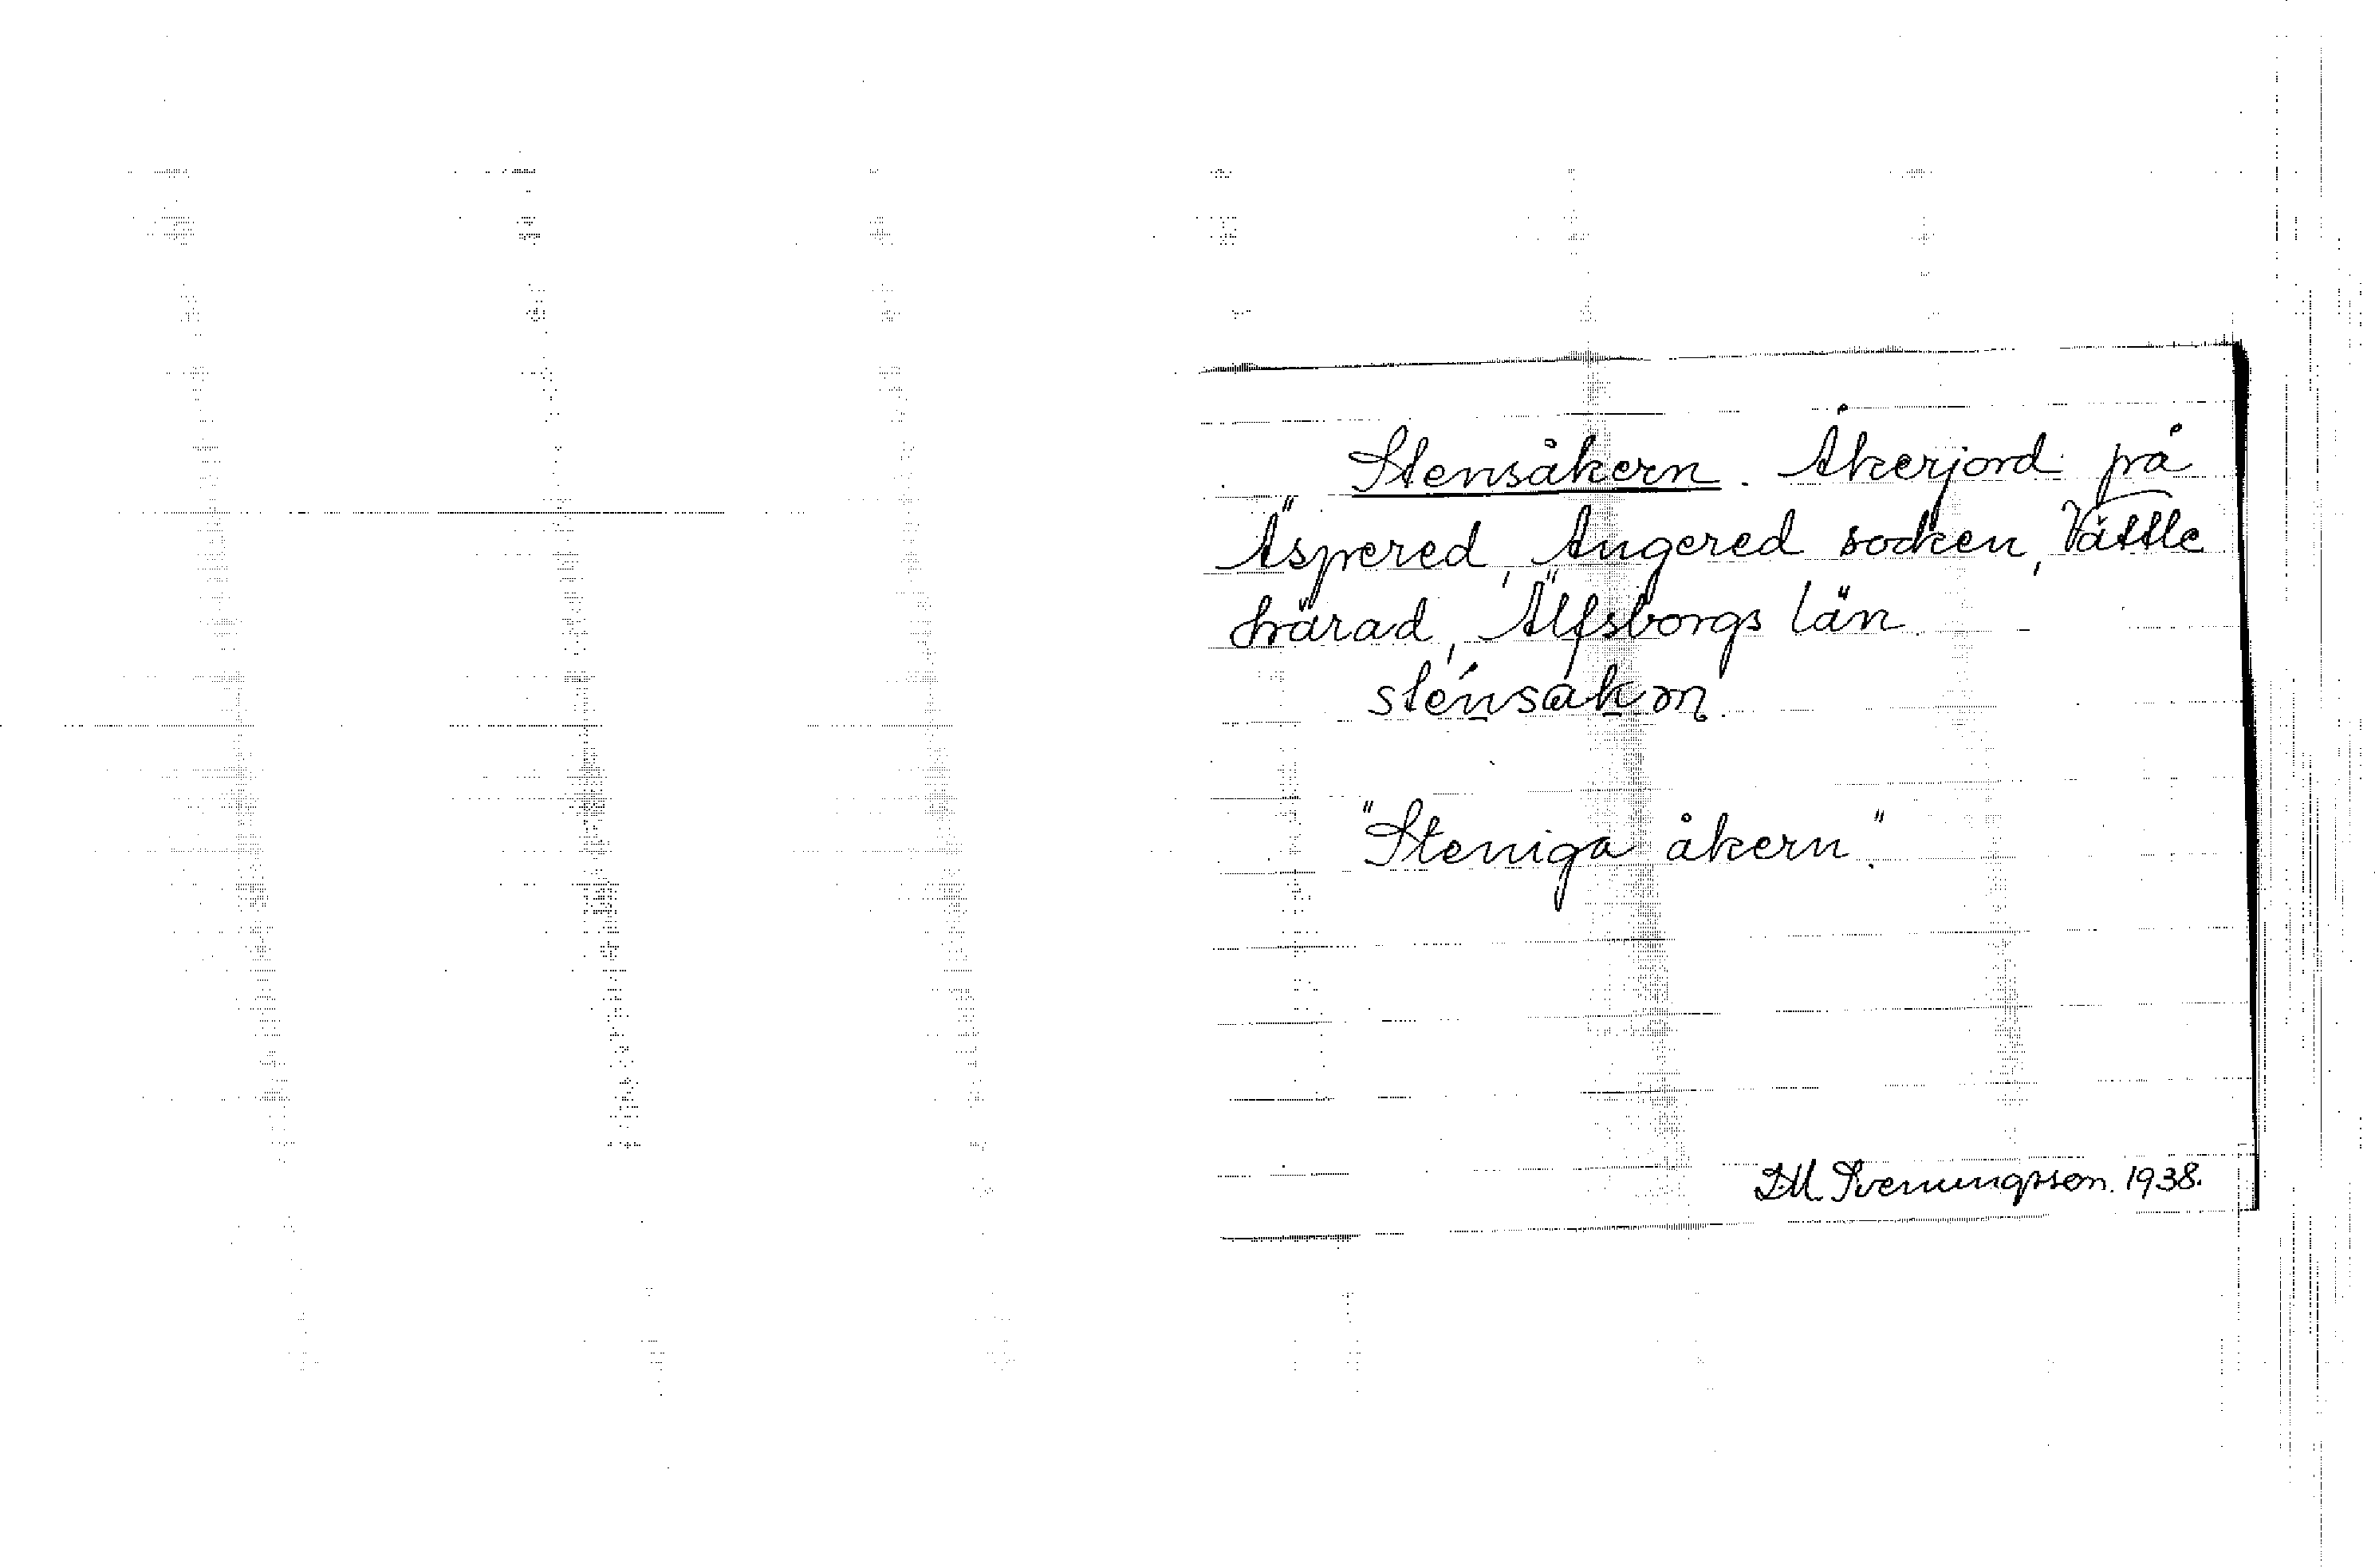 Stensåkern. Åkerjord på
Äspered, Angered socken, Vättle
härad, Älfsborgs län.
sténsåkɷn.
"Steniga åkern."
D.M. Svenungsson. 1938.